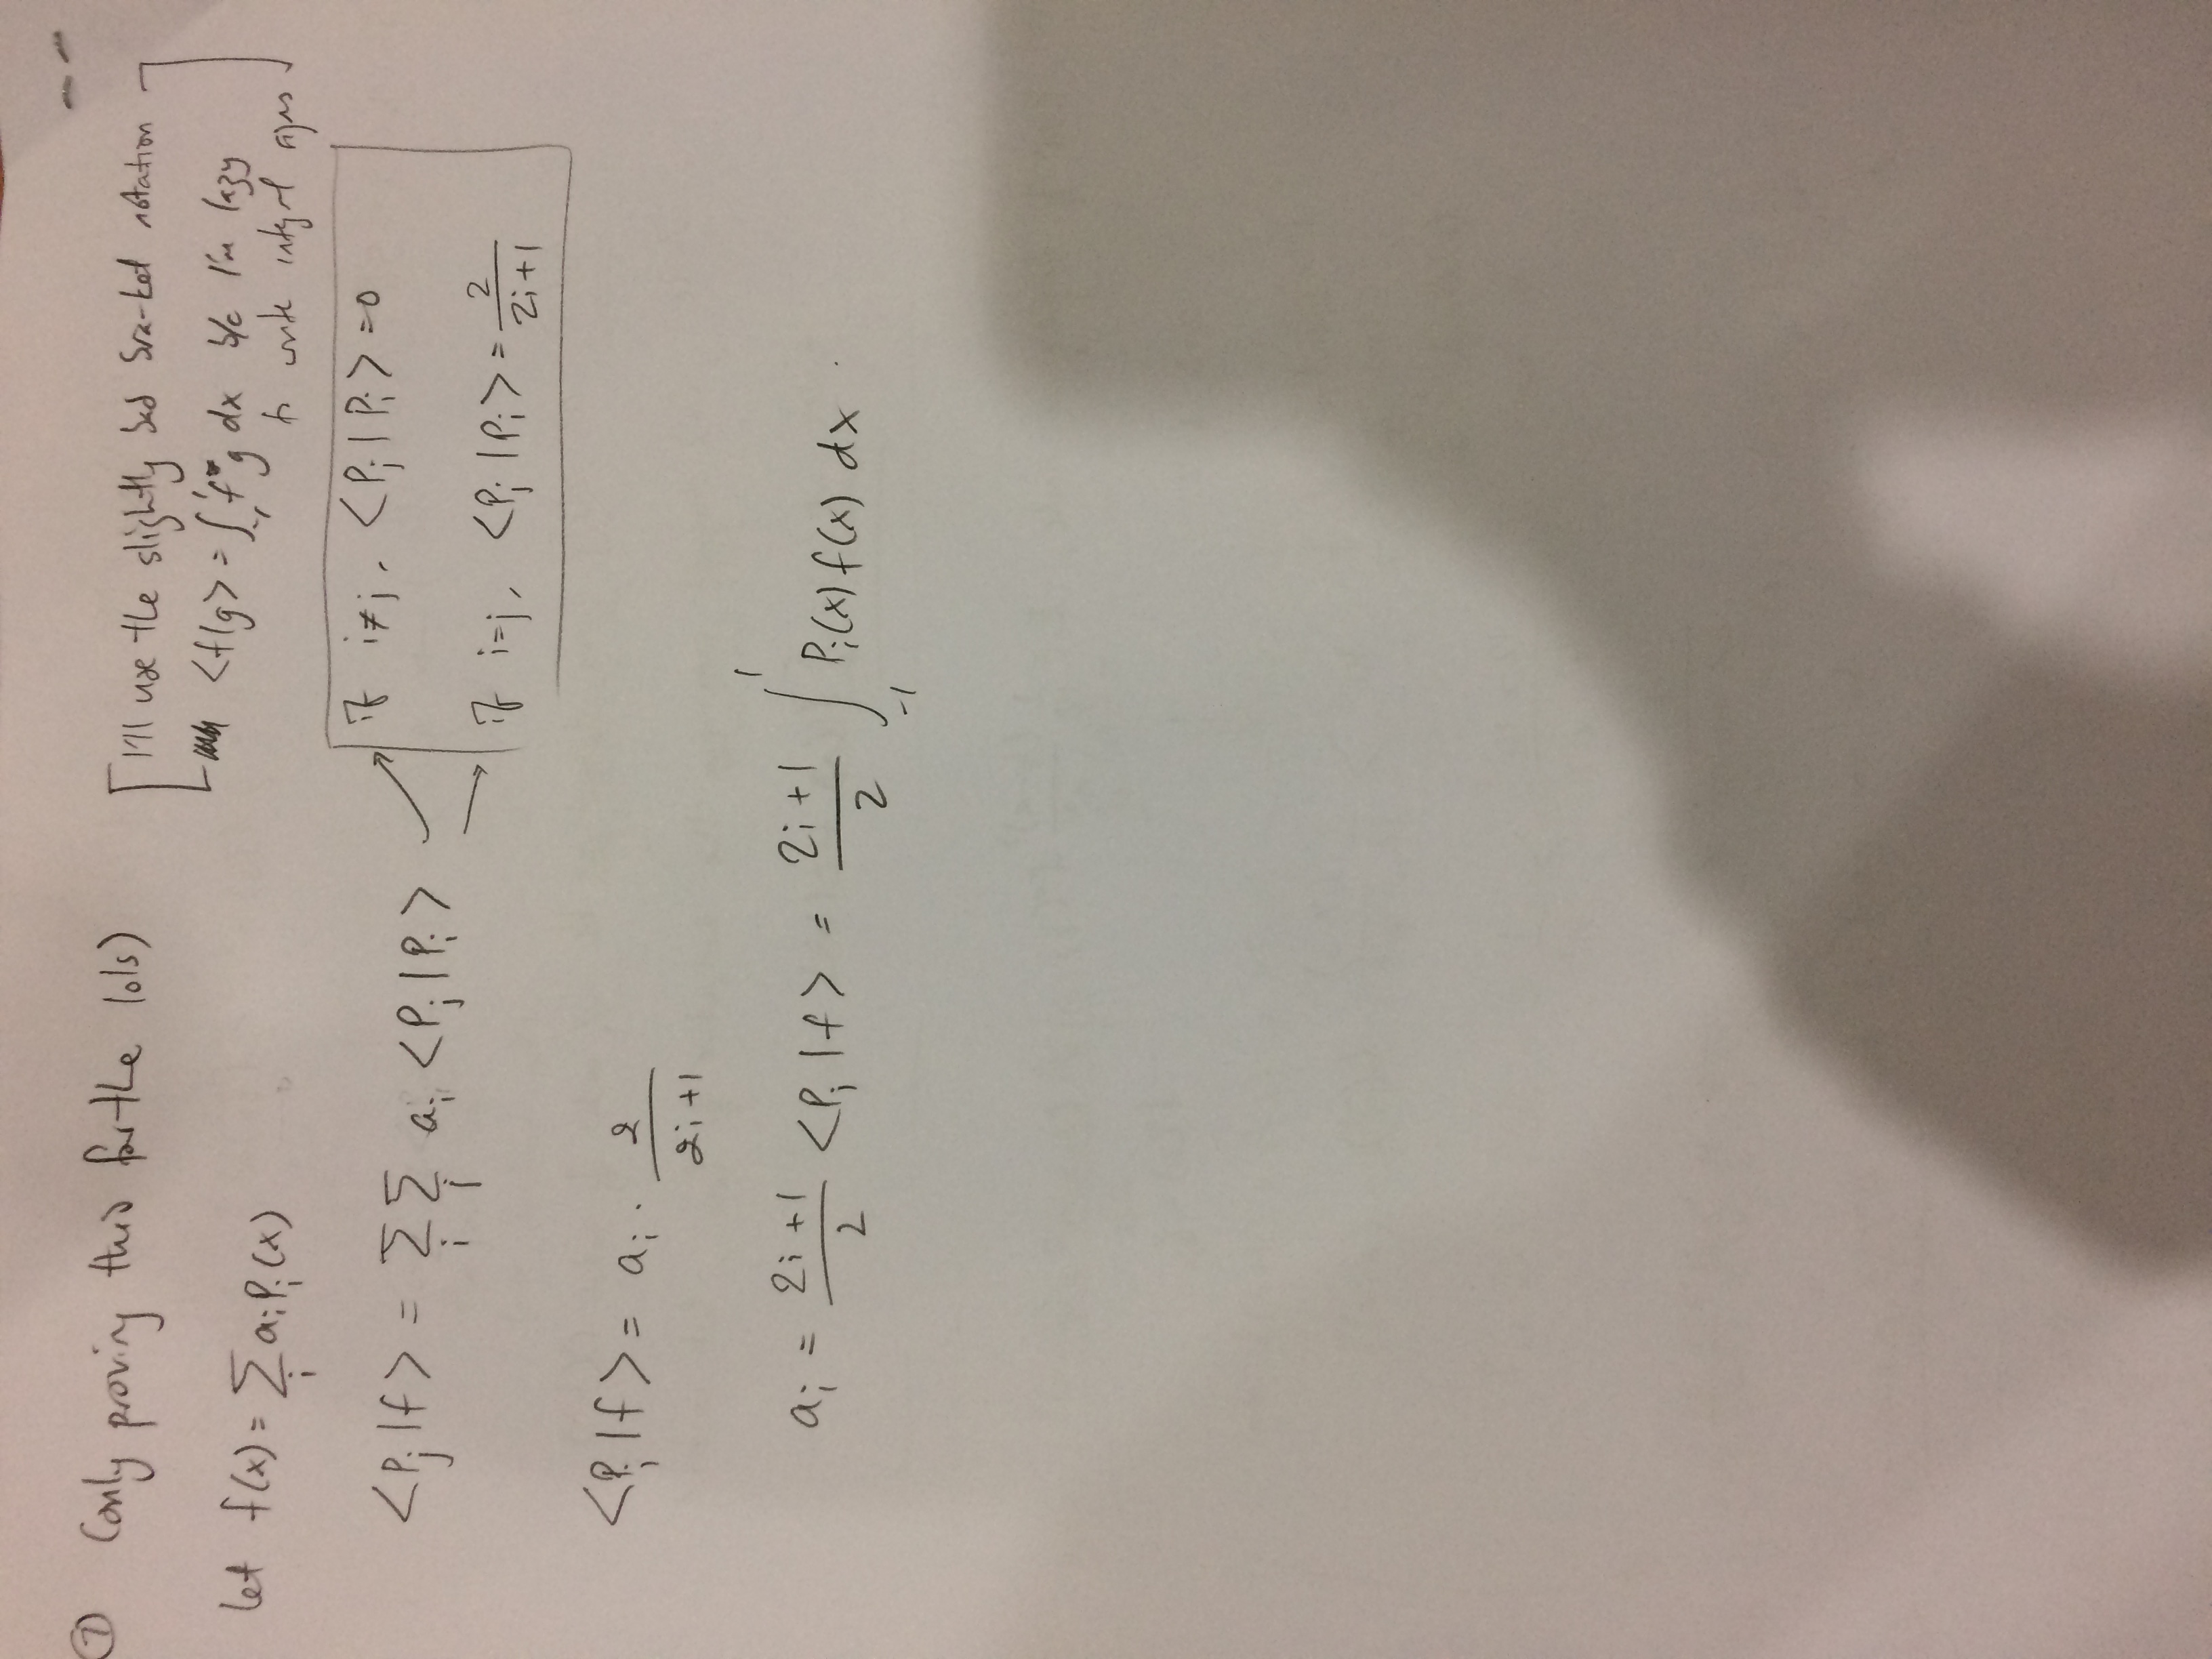 ⑦ (only proving this for the lols)
[I'll use the slightly bad bra-ket notation
<f|g> = ∫₋₁¹ f*g dx b/c I'm lazy
to write integral signs]
let f(x) = Σᵢ aᵢ Pᵢ(x)
<Pⱼ|f> = Σᵢ Σⱼ aᵢ <Pⱼ|Pᵢ>
if i≠j, <Pⱼ|Pᵢ> = 0
if i=j, <Pⱼ|Pᵢ> = 2/(2i+1)
<Pᵢ|f> = aᵢ · 2/(2i+1)
aᵢ = (2i+1)/2 <Pᵢ|f> = (2i+1)/2 ∫₋₁¹ Pᵢ(x) f(x) dx.